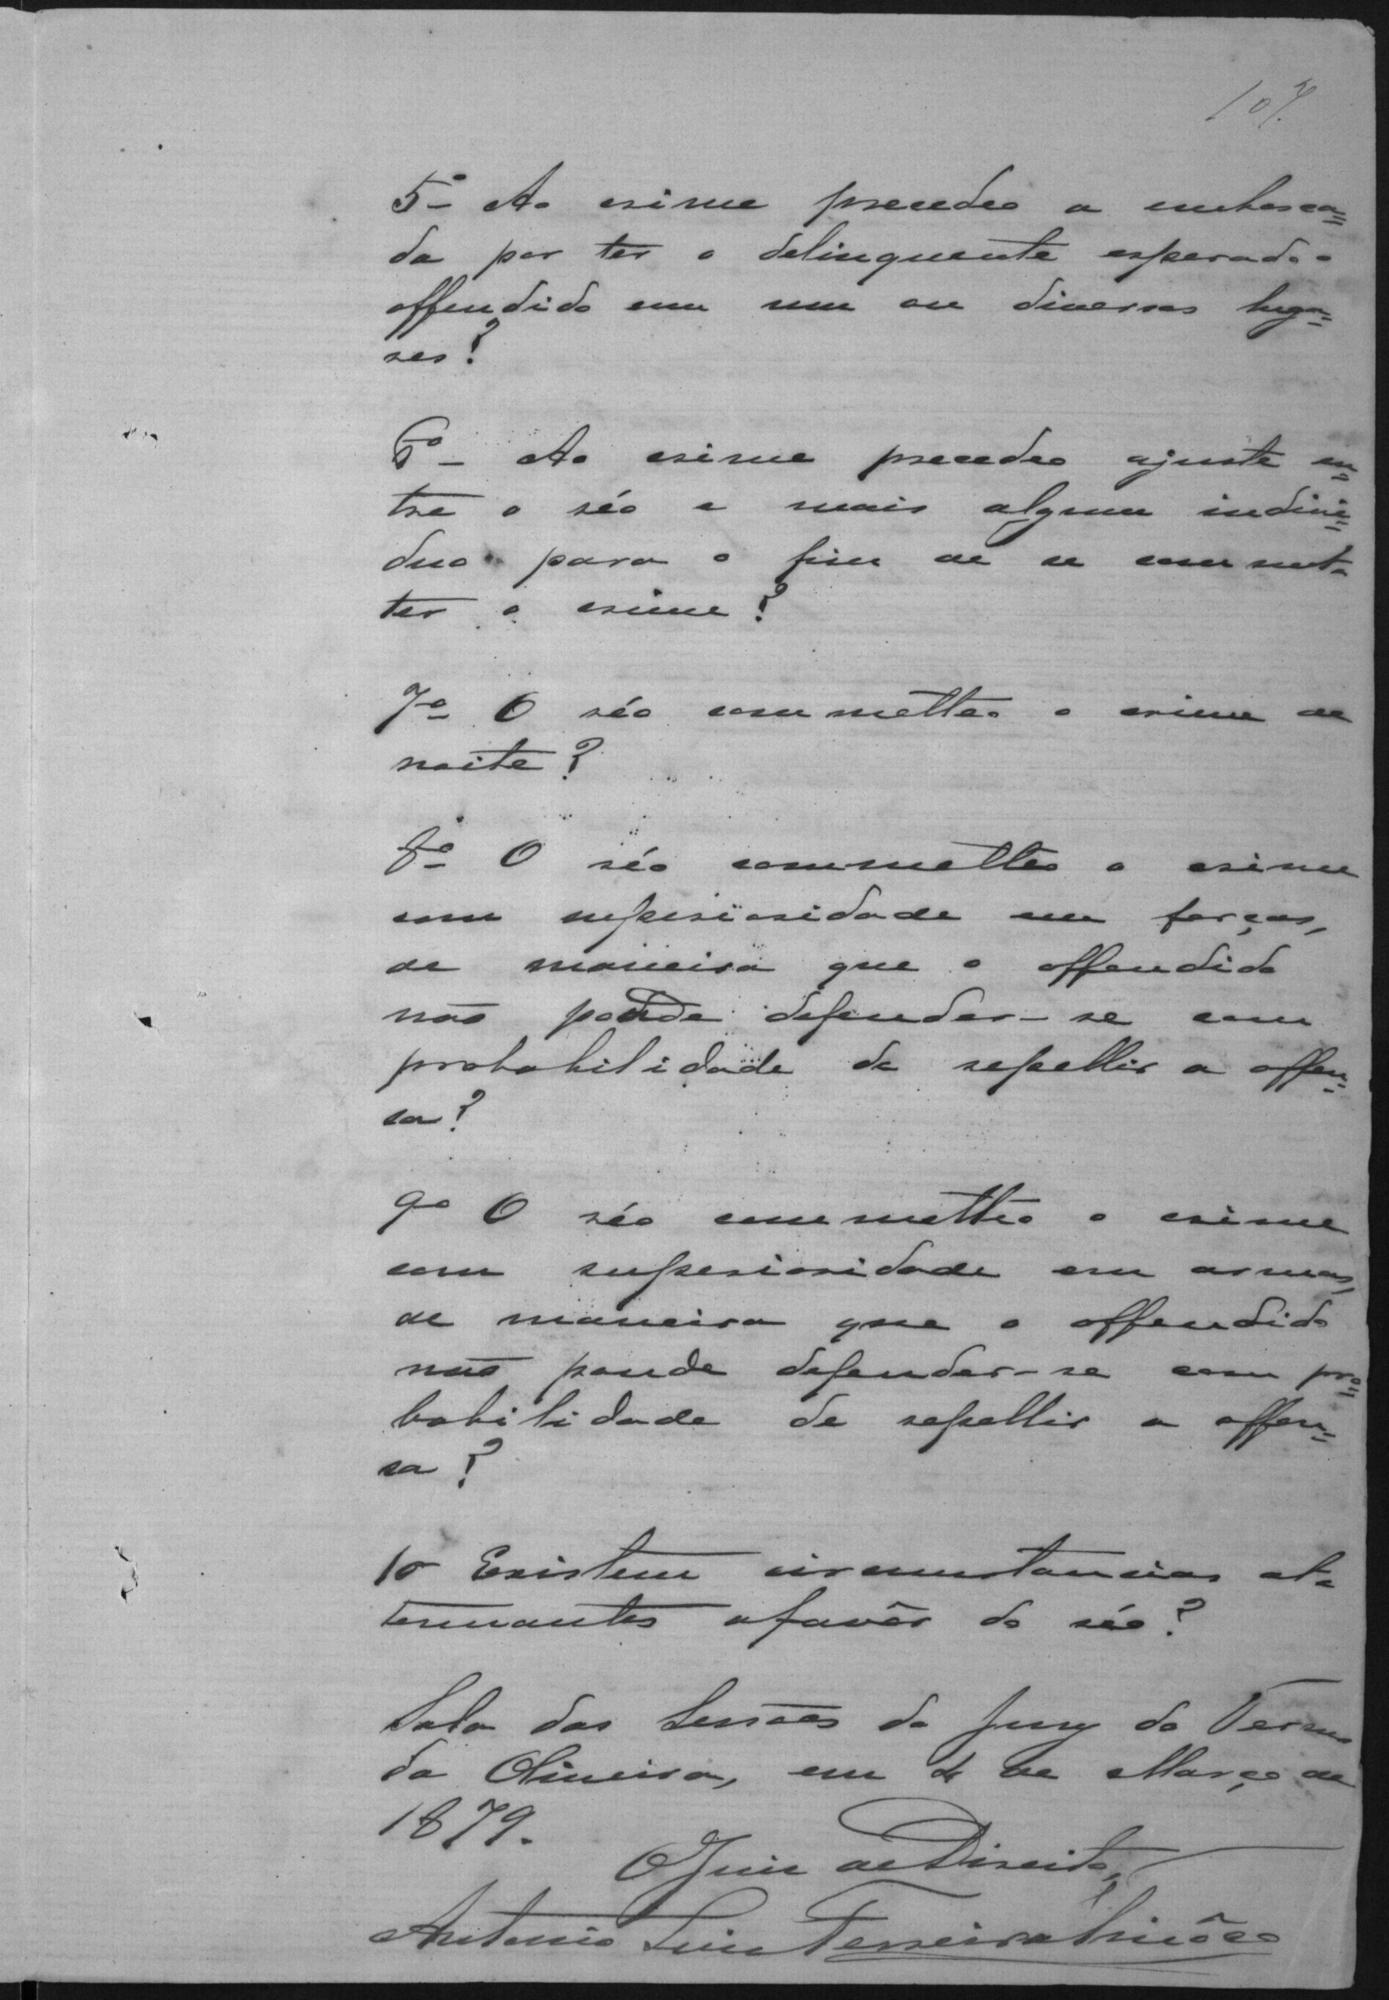 107.
5º Ao crime precedeo a embosca=
da por ter o delinquente esperado o
offendido em um ou diversos luga=
res?
6º Ao crime precedeo ajuste en=
tre o réo e mais algum indivi=
duo para o fim de se commet=
ter o crime?
7º O réo commetteo o crime de
noite?
8º O réo commetteo o crime
com superioridade em forças,
de maneira que o offendido
não poude defender-se com
probabilidade de repellir a offen=
sa?
9º O réo commetteo o crime
com superioridade em armas,
de maneira que o offendido
não poude defender-se com pro=
babilidade de repellir a offen=
sa?
10 Existem circumstancias at=
tenuantes a favôr do réo?
Sala das Sessões do Jury do Termo
da Oliveira, em 4 de Março de
1879.
O Juiz de Direito,
Antonio Luiz Ferreira Tinôco